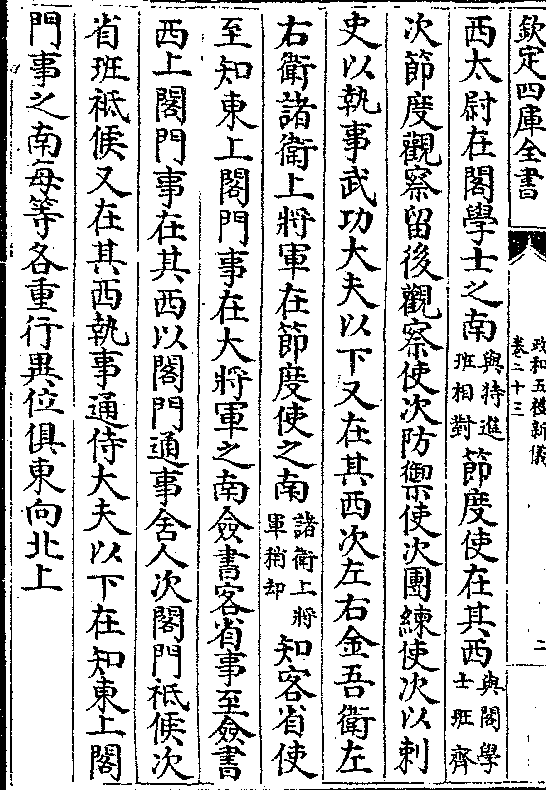 欽定四庫全書
政和五禮新儀
卷二十三
二
西太尉在閣學士之南與特進班相對節度使在其西與閣學士班齊
次節度觀察留後觀察使次防禦使次團練使次以刺
史以執事武功大夫以下又在其西次左右金吾衛左
右衛諸衛上將軍在節度使之南諸衛上將軍稍却知客省使
至知東上閣門事在大將軍之南僉書客省事至僉書
西上閣門事在其西以閣門通事舍人次閣門祗候次
省班祗候又在其西執事通侍大夫以下在知東上閣
門事之南每等各重行異位俱東向北上